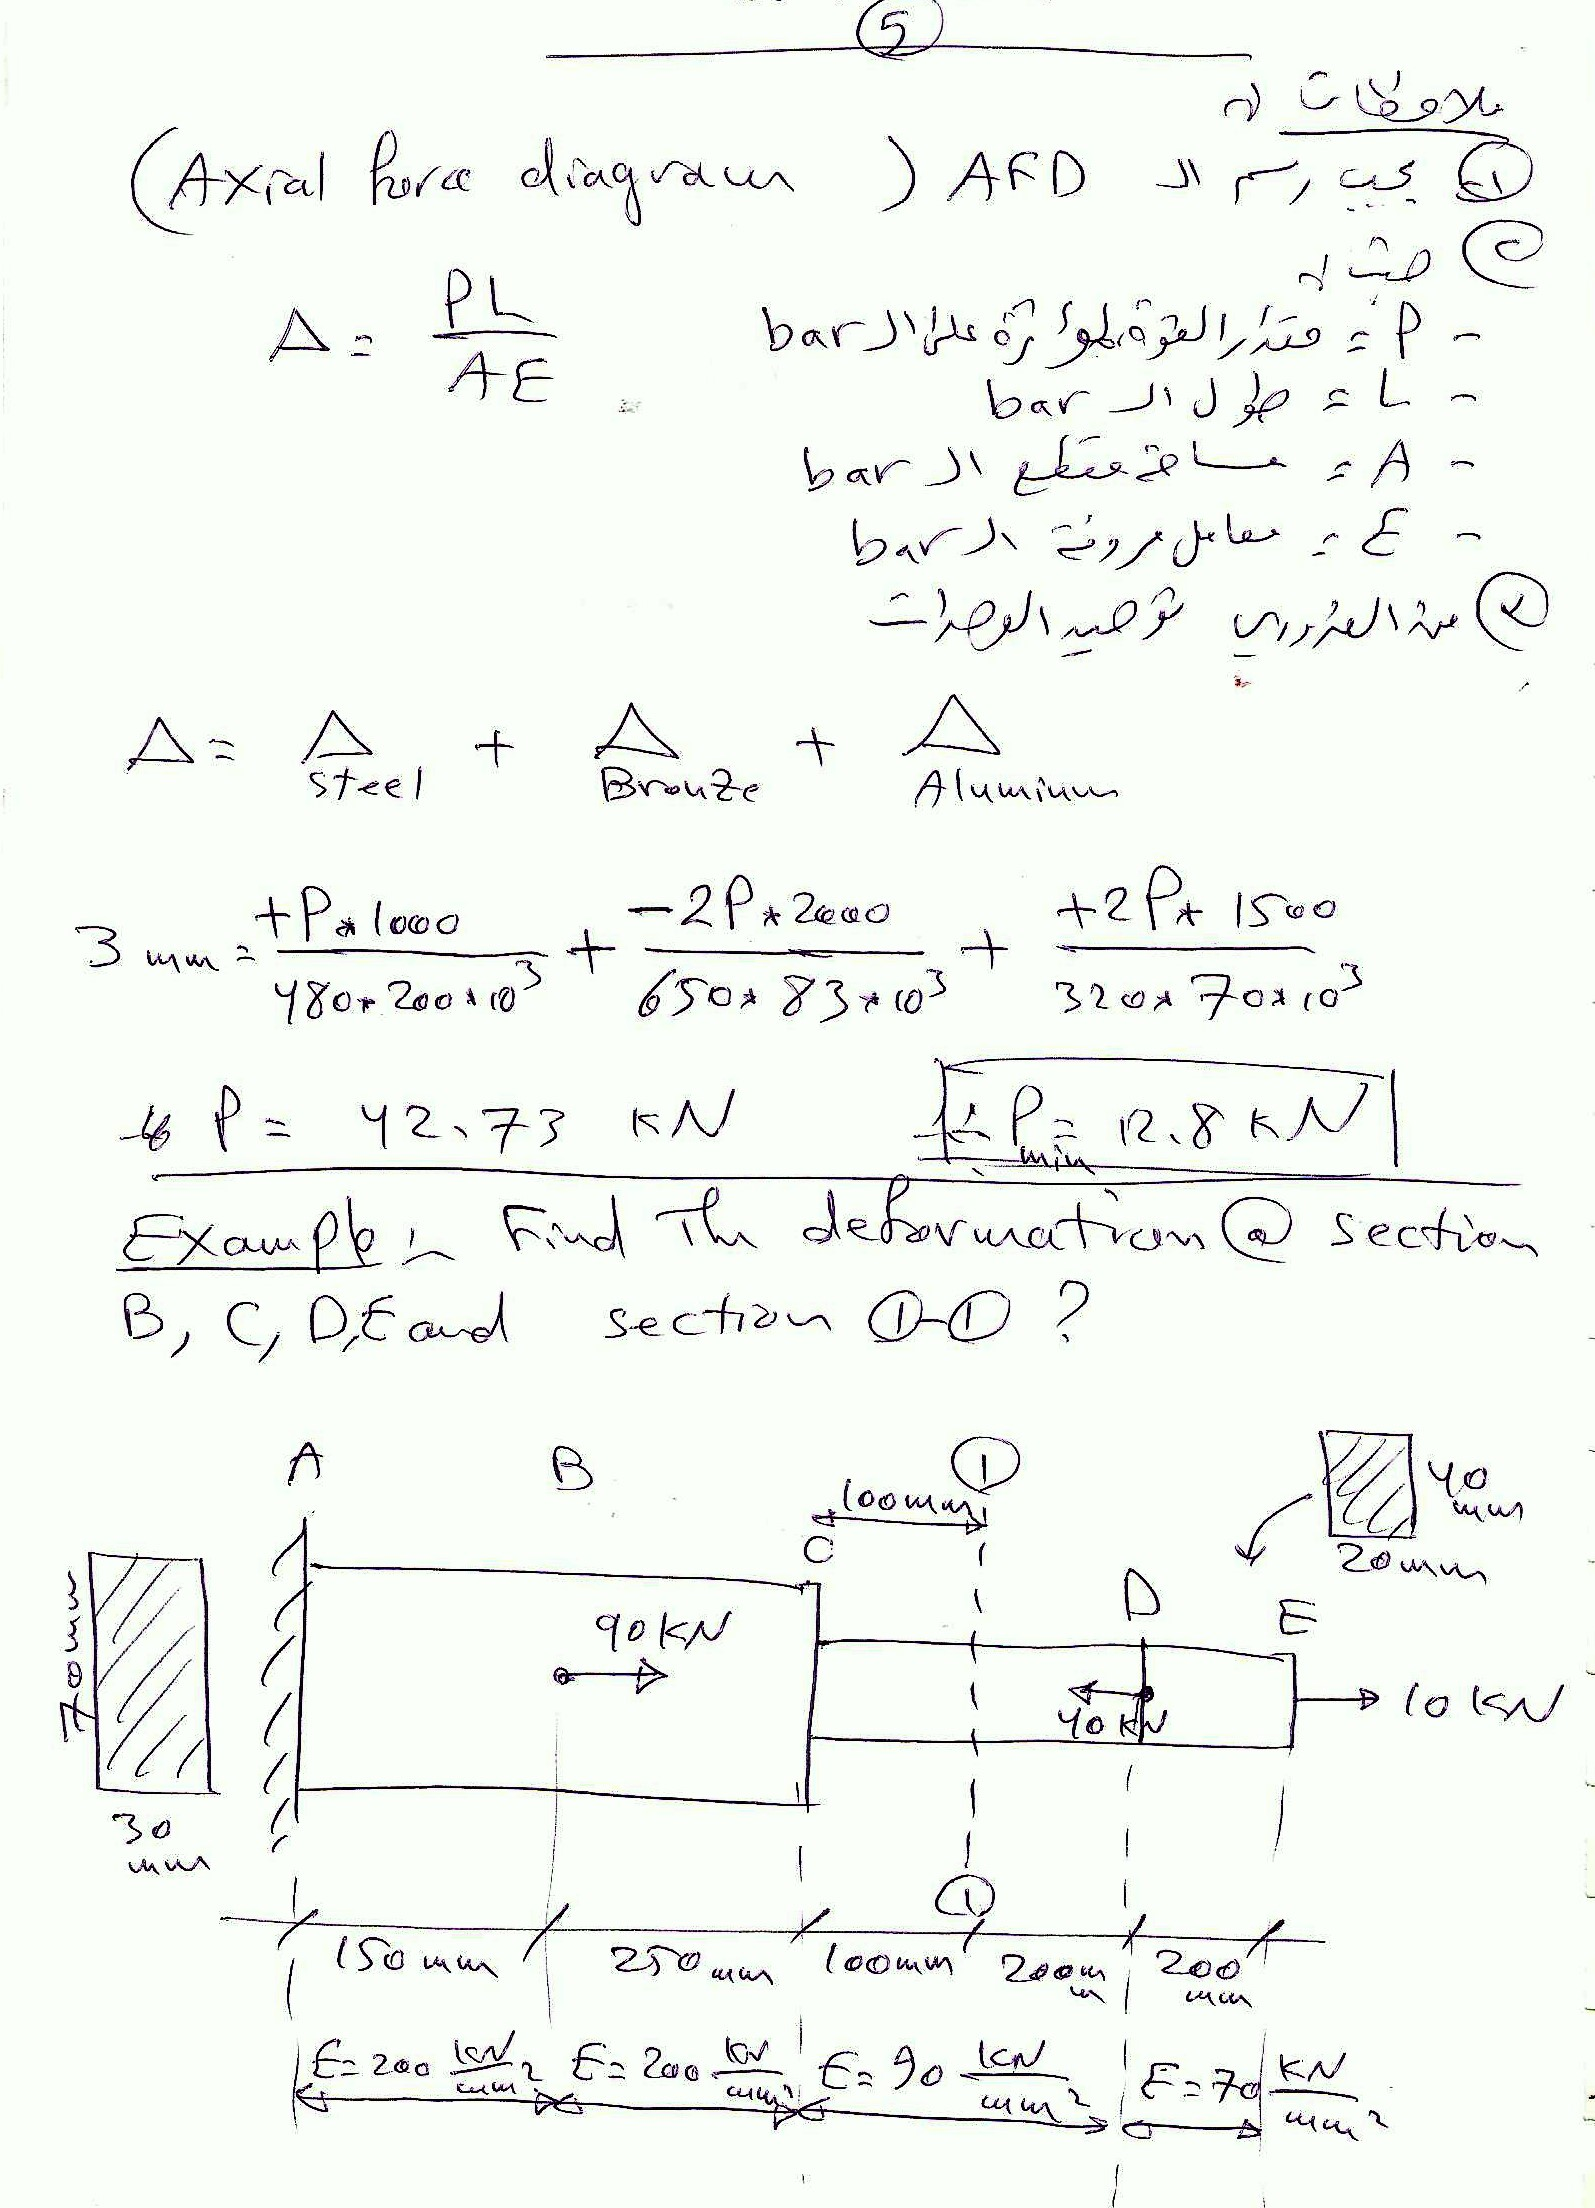 5
ملاحظات :
① يجب رسم الـ AFD (Axial force diagram)
② حيث :
Δ = PL / AE
- P = مقدار القوة المؤثرة على الـ bar
- L = طول الـ bar
- A = مساحة مقطع الـ bar
- E = معامل مرونة الـ bar
③ من الضروري توحيد الوحدات
Δ = Δ Steel + Δ Bronze + Δ Aluminium
3 mm = +P*1000 / 480*200*10³ + -2P*2000 / 650*83*10³ + +2P*1500 / 320*70*10³
P = 42.73 KN
P min = 12.8 KN
Example:- Find The deformation @ section
B, C, D, E and section ①-① ?
A B ①
100mm
C
40 mm
20mm
D
E
70mm
30 mm
90 KN
40 KN
10 KN
①
150mm 250mm 100mm 200mm 200 mm
E=200 KN/mm² E=200 KN/mm² E=90 KN/mm² E=70 KN/mm²